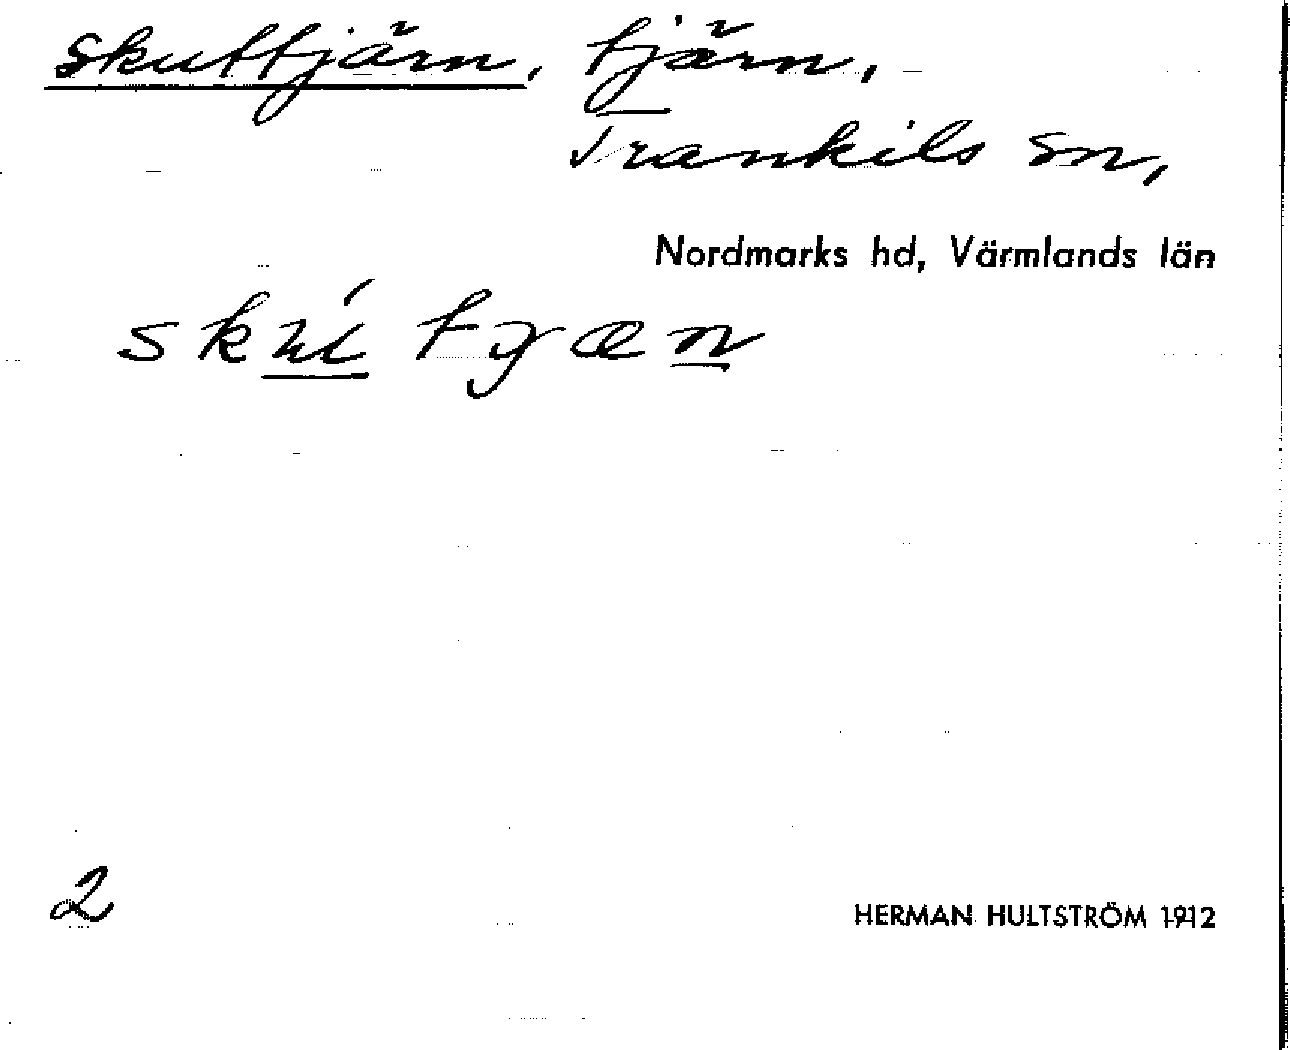 Skuttjärn, tjärn,
Trankils sn,
Nordmarks hd, Värmlands län
2
HERMAN HULTSTRÖM 1912